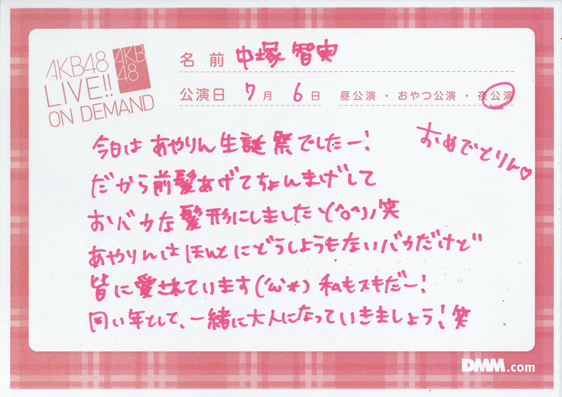 AKB48
LIVE!!
ON DEMAND
AKB
48
名前 中塚 智実
公演日 7月 6日 昼公演・おやつ公演・夜公演
おめでとりん♡
今日は あやりん 生誕祭でしたー!
だから前髪あげてちょんまげして
おバカな髪形にしました ヽ(^o^)ノ笑
あやりんはほんとにどうしようもないバカだけど
皆に愛されています(´ω`*) 私もスキだー!
同い年として、一緒に大人になっていきましょう!笑
DMM.com